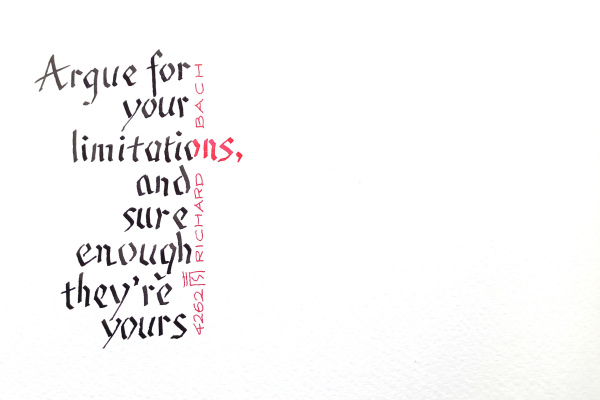 Argue for
your
limitations,
and
sure
enough
they're
yours
4262 RICHARD BACH